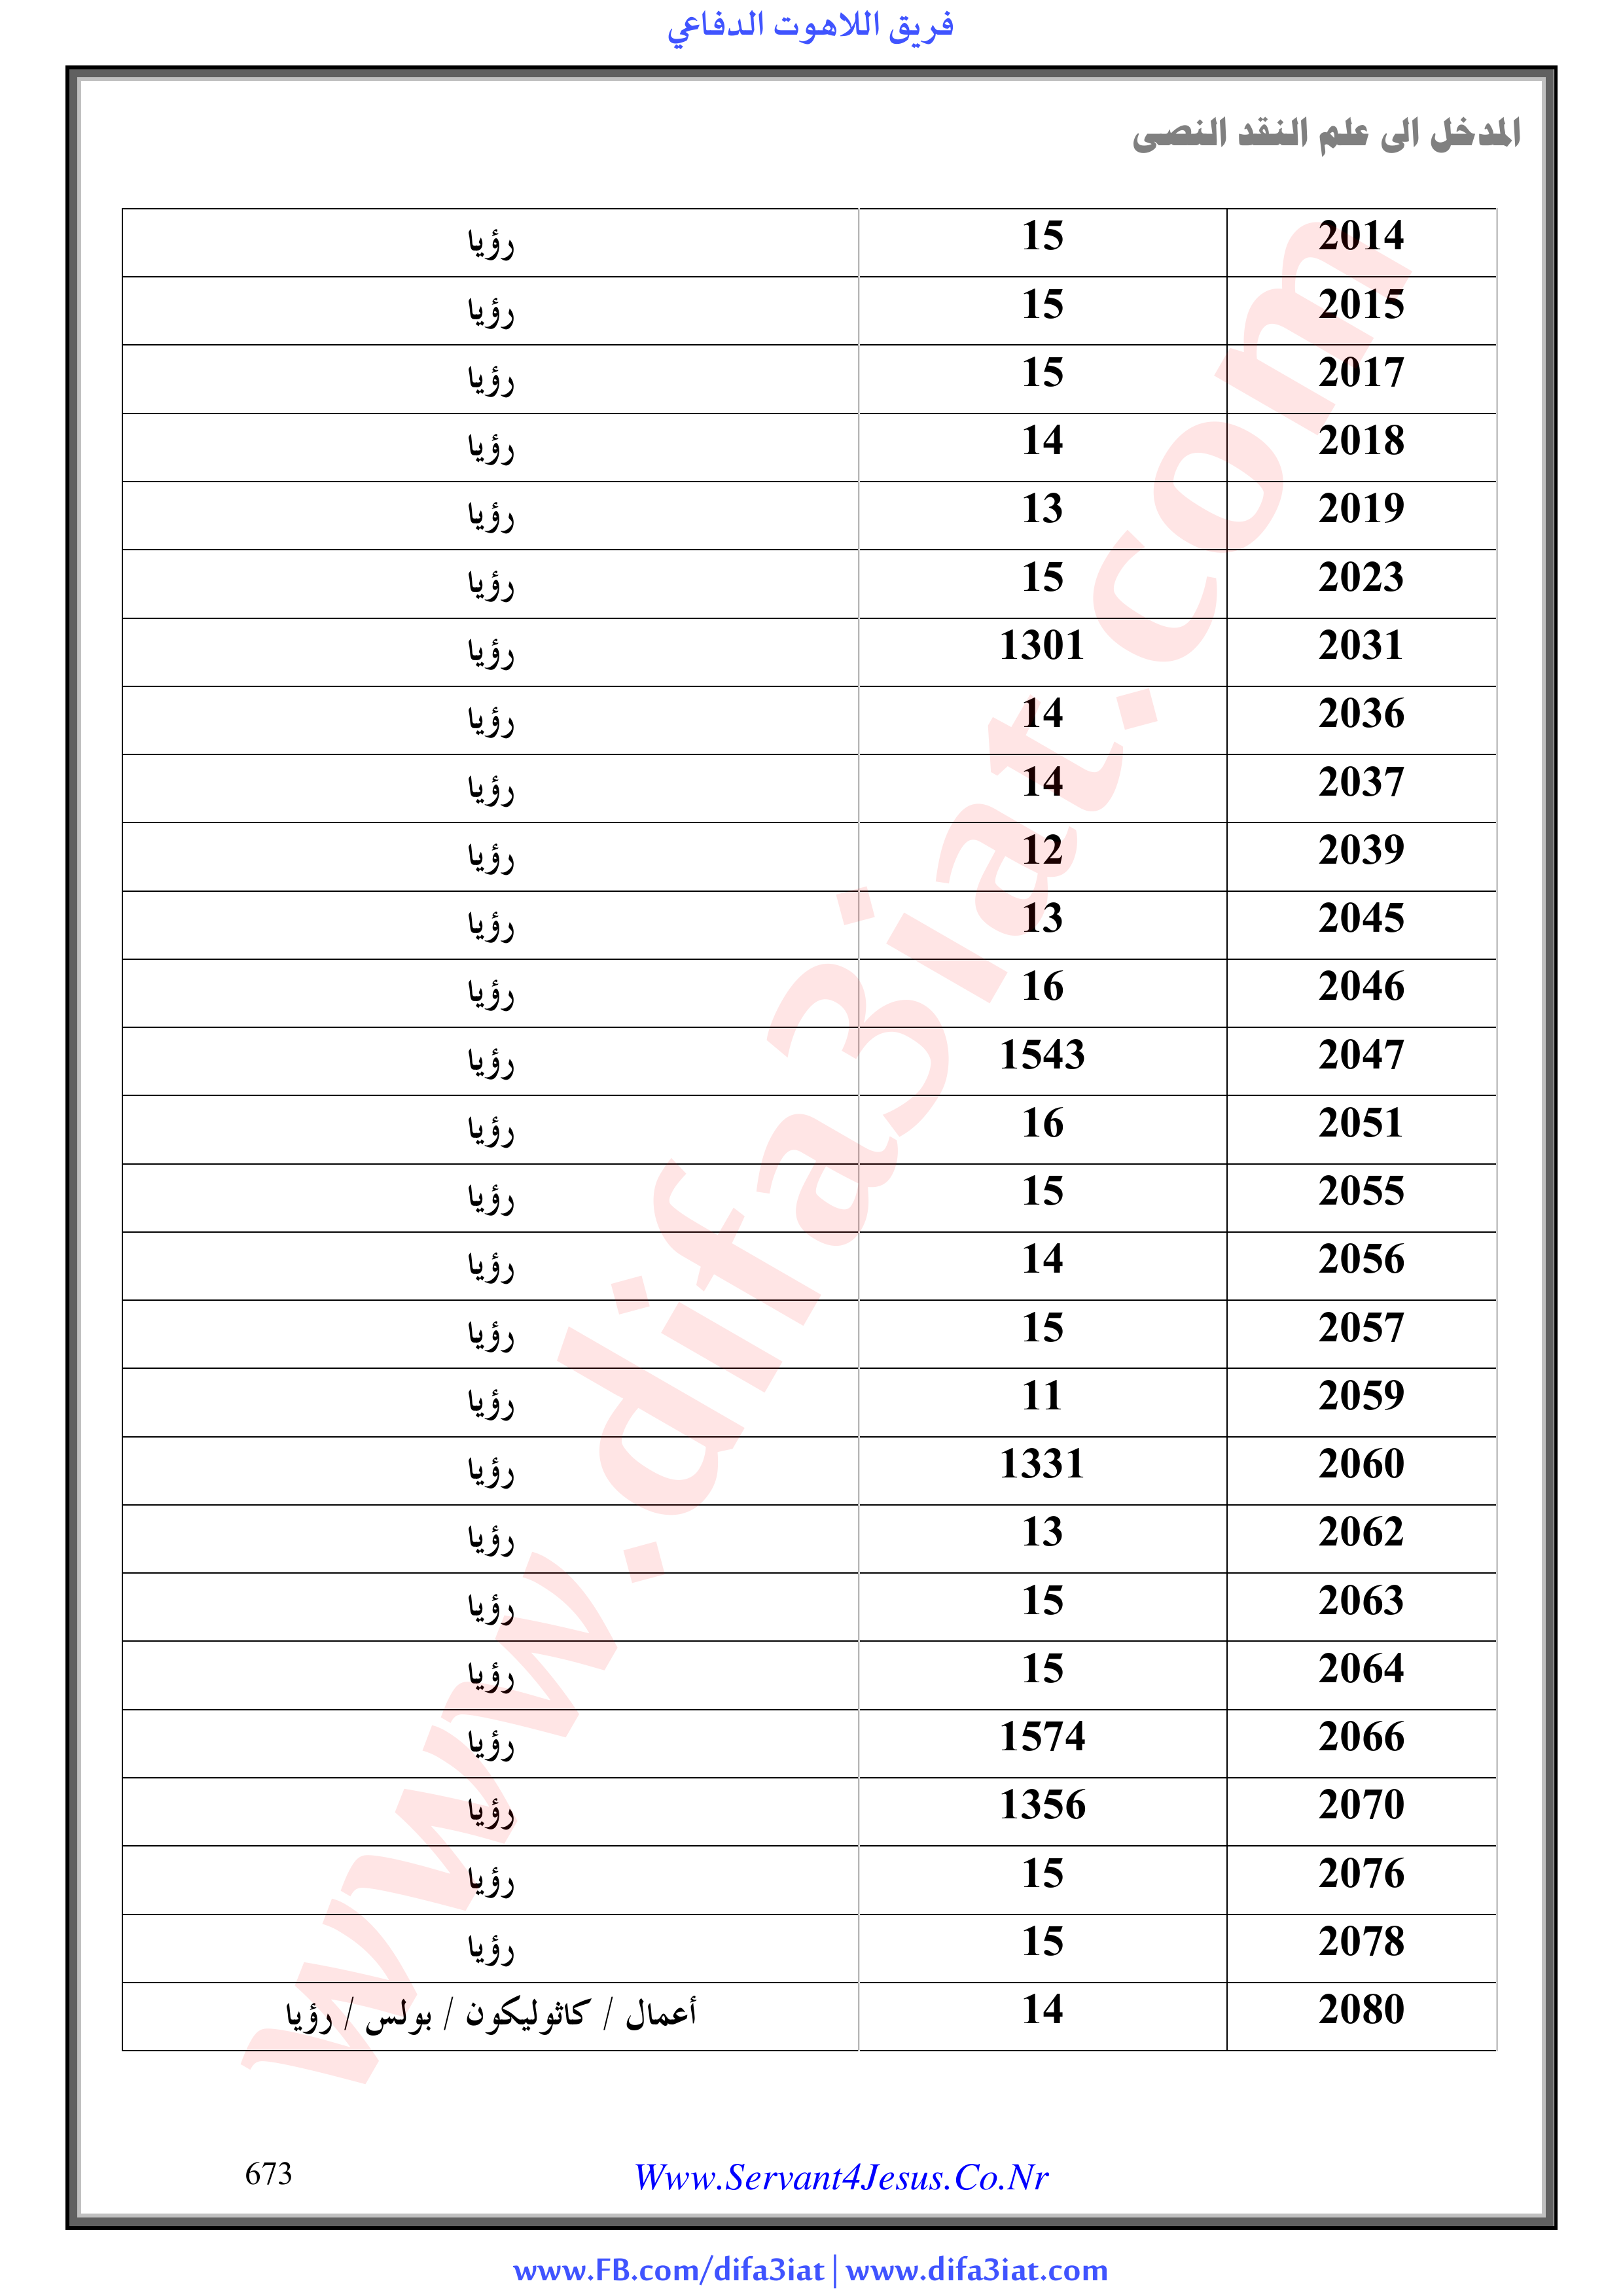 فريق اللاهوت الدفاعي
المدخل الى علم النقد النصى
2014 15 رؤيا
2015 15 رؤيا
2017 15 رؤيا
2018 14 رؤيا
2019 13 رؤيا
2023 15 رؤيا
2031 1301 رؤيا
2036 14 رؤيا
2037 14 رؤيا
2039 12 رؤيا
2045 13 رؤيا
2046 16 رؤيا
2047 1543 رؤيا
2051 16 رؤيا
2055 15 رؤيا
2056 14 رؤيا
2057 15 رؤيا
2059 11 رؤيا
2060 1331 رؤيا
2062 13 رؤيا
2063 15 رؤيا
2064 15 رؤيا
2066 1574 رؤيا
2070 1356 رؤيا
2076 15 رؤيا
2078 15 رؤيا
2080 14 أعمال / كاثوليكون / بولس / رؤيا
www.difa3iat.com
673 Www.Servant4Jesus.Co.Nr
www.FB.com/difa3iat | www.difa3iat.com